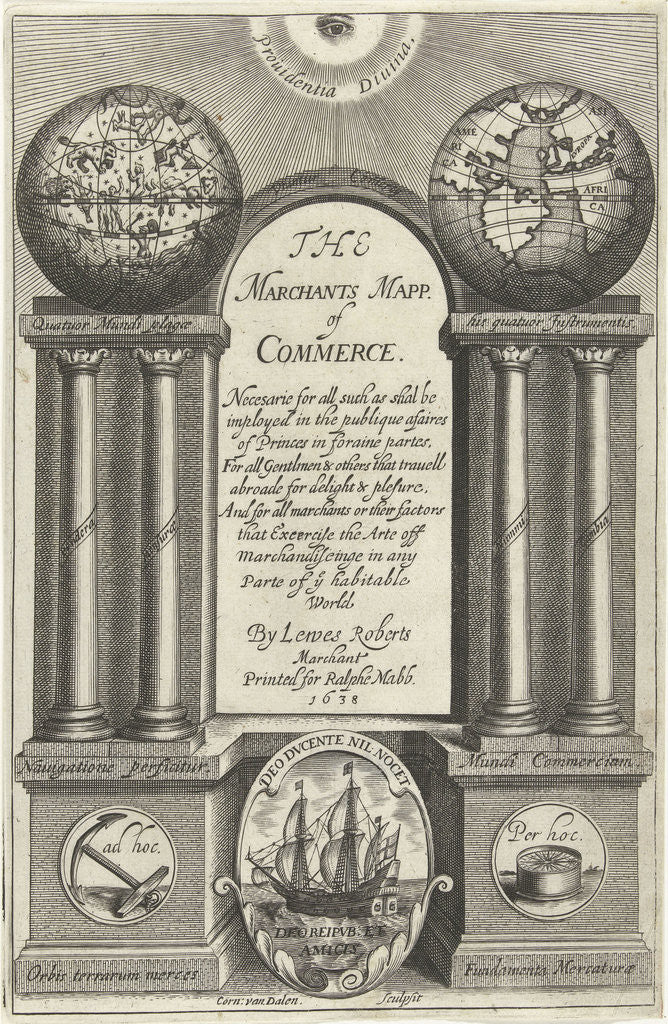 Providentia Divina.
AME
RI
CA
ASI
EUROPA
AFRI
CA
THE
MARCHANTS MAPP.
of
COMMERCE.
Quatuor Mundi plagæ
his quatuor Instrumentis
Necesarie for all such as shal be
imployed in the publique afaires
of Princes in foraine partes,
For all Gentlmen & others that travell
abroade for delight & plesure,
And for all marchants or their factors
that Exercise the Arte off
marchandiseinge in any
Parte of ÿ habitable
World
By Lewes Roberts
Marchant
Printed for Ralphe Mabb.
1638
Navigatione perficitur.
Mundi Commercium.
DEO DVCENTE NIL NOCET
ad hoc.
Per hoc.
DEO REIPVB: ET
AMICIS
Orbis terrarum merces
Fundamenta Mercaturæ
Corn: van Dalen. Sculpsit